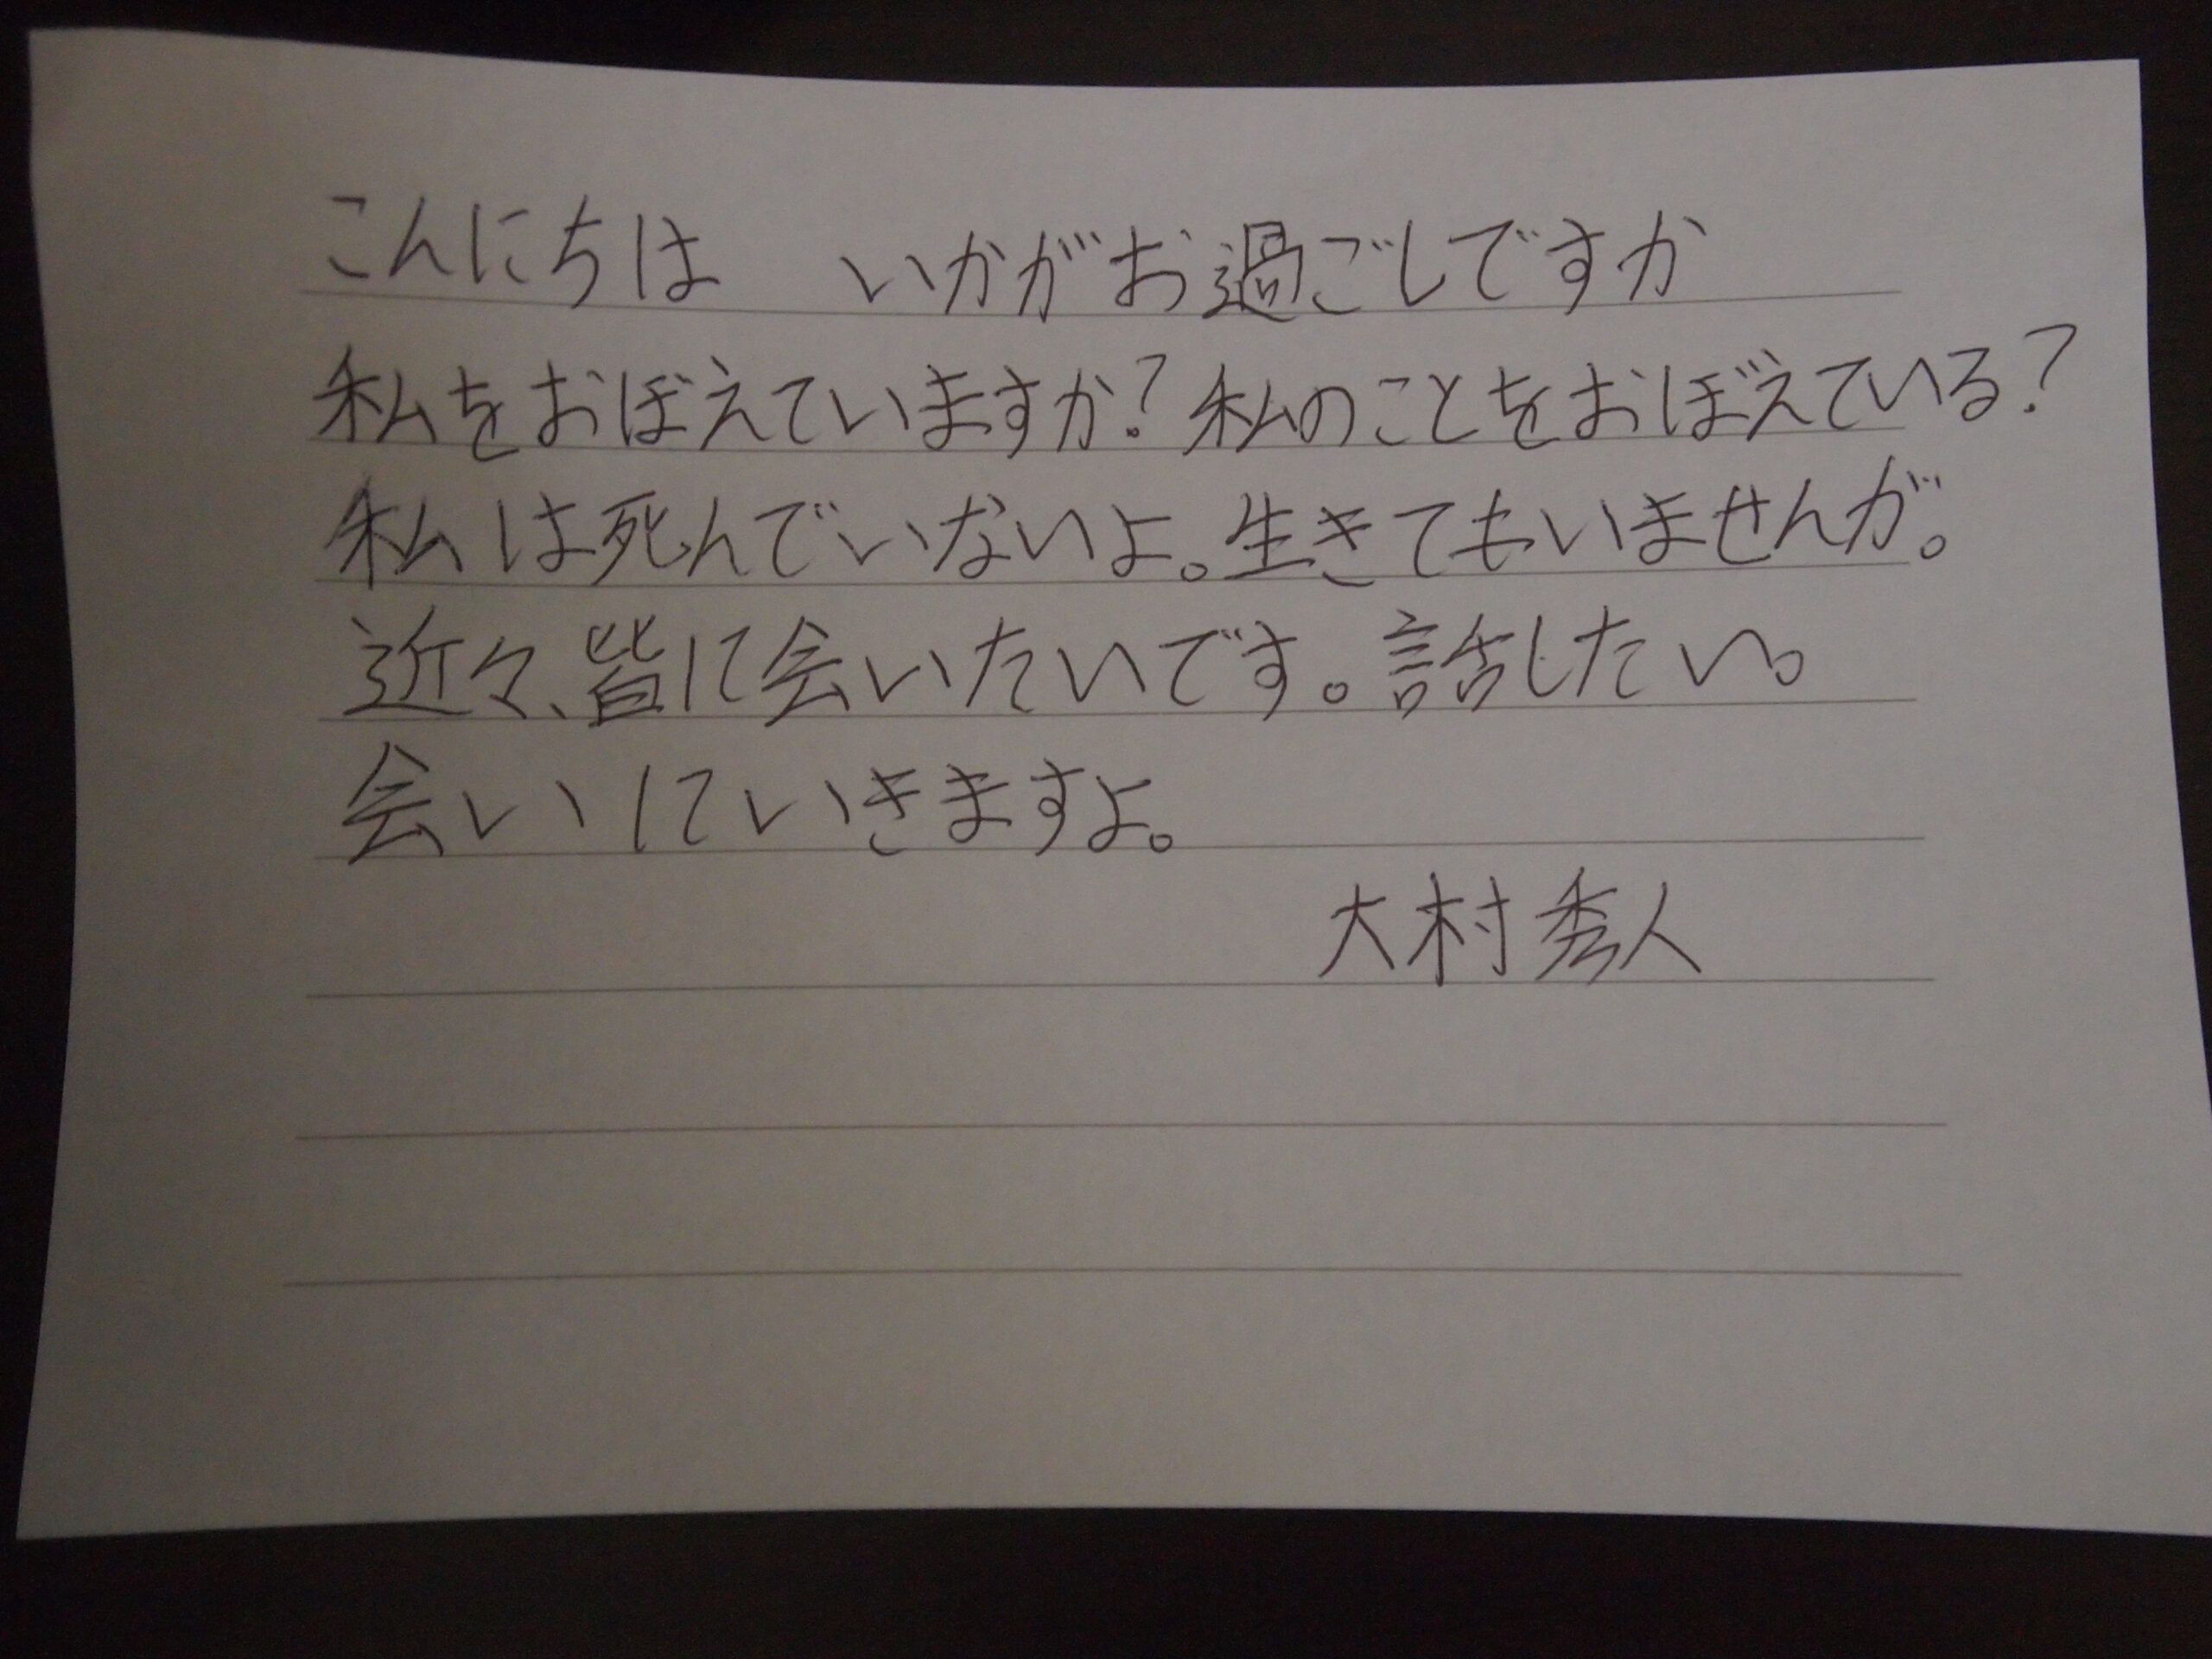 こんにちは　いかがお過ごしですか
私をおぼえていますか？私のことをおぼえている？
私は死んでいないよ。生きてもいませんが。
近々、皆に会いたいです。話したい。
会いにいきますよ。
大村秀人